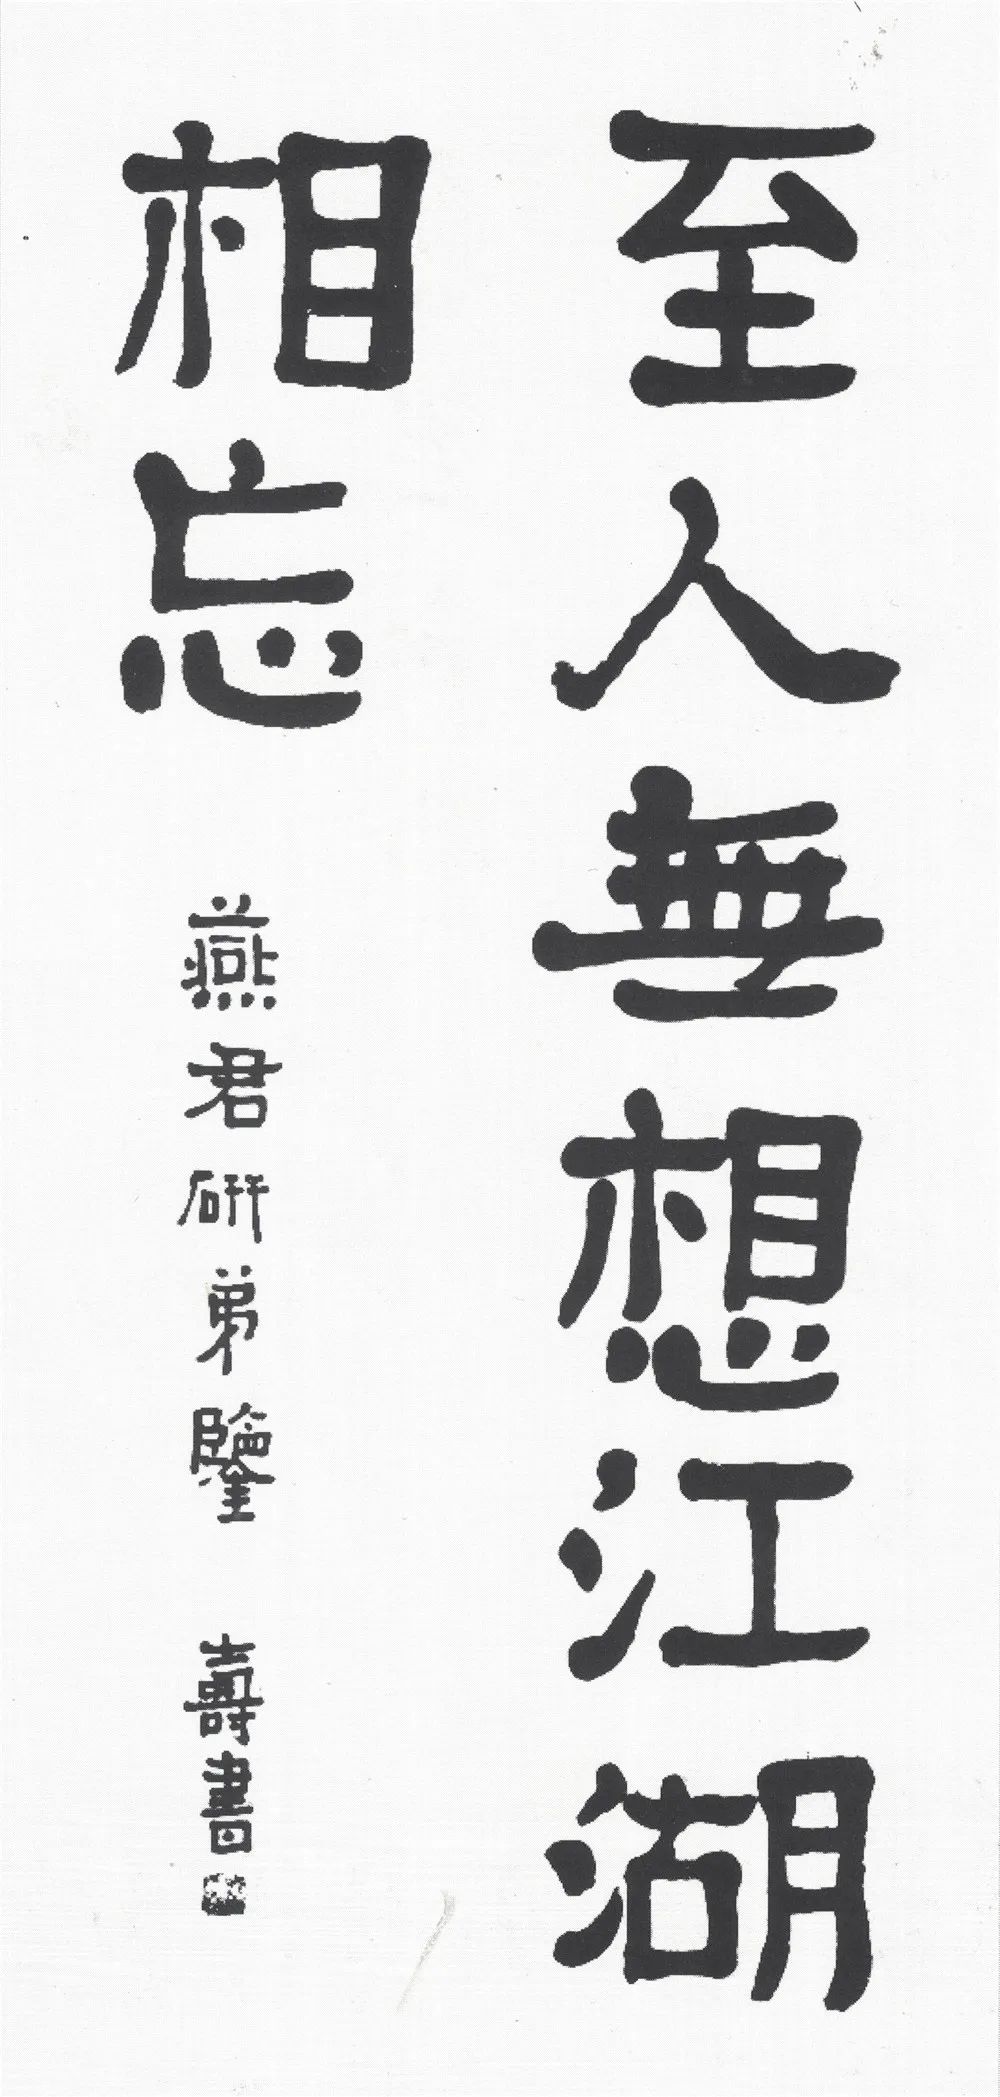 至人無想江湖
相忘
燕君研弟鑒 壽書